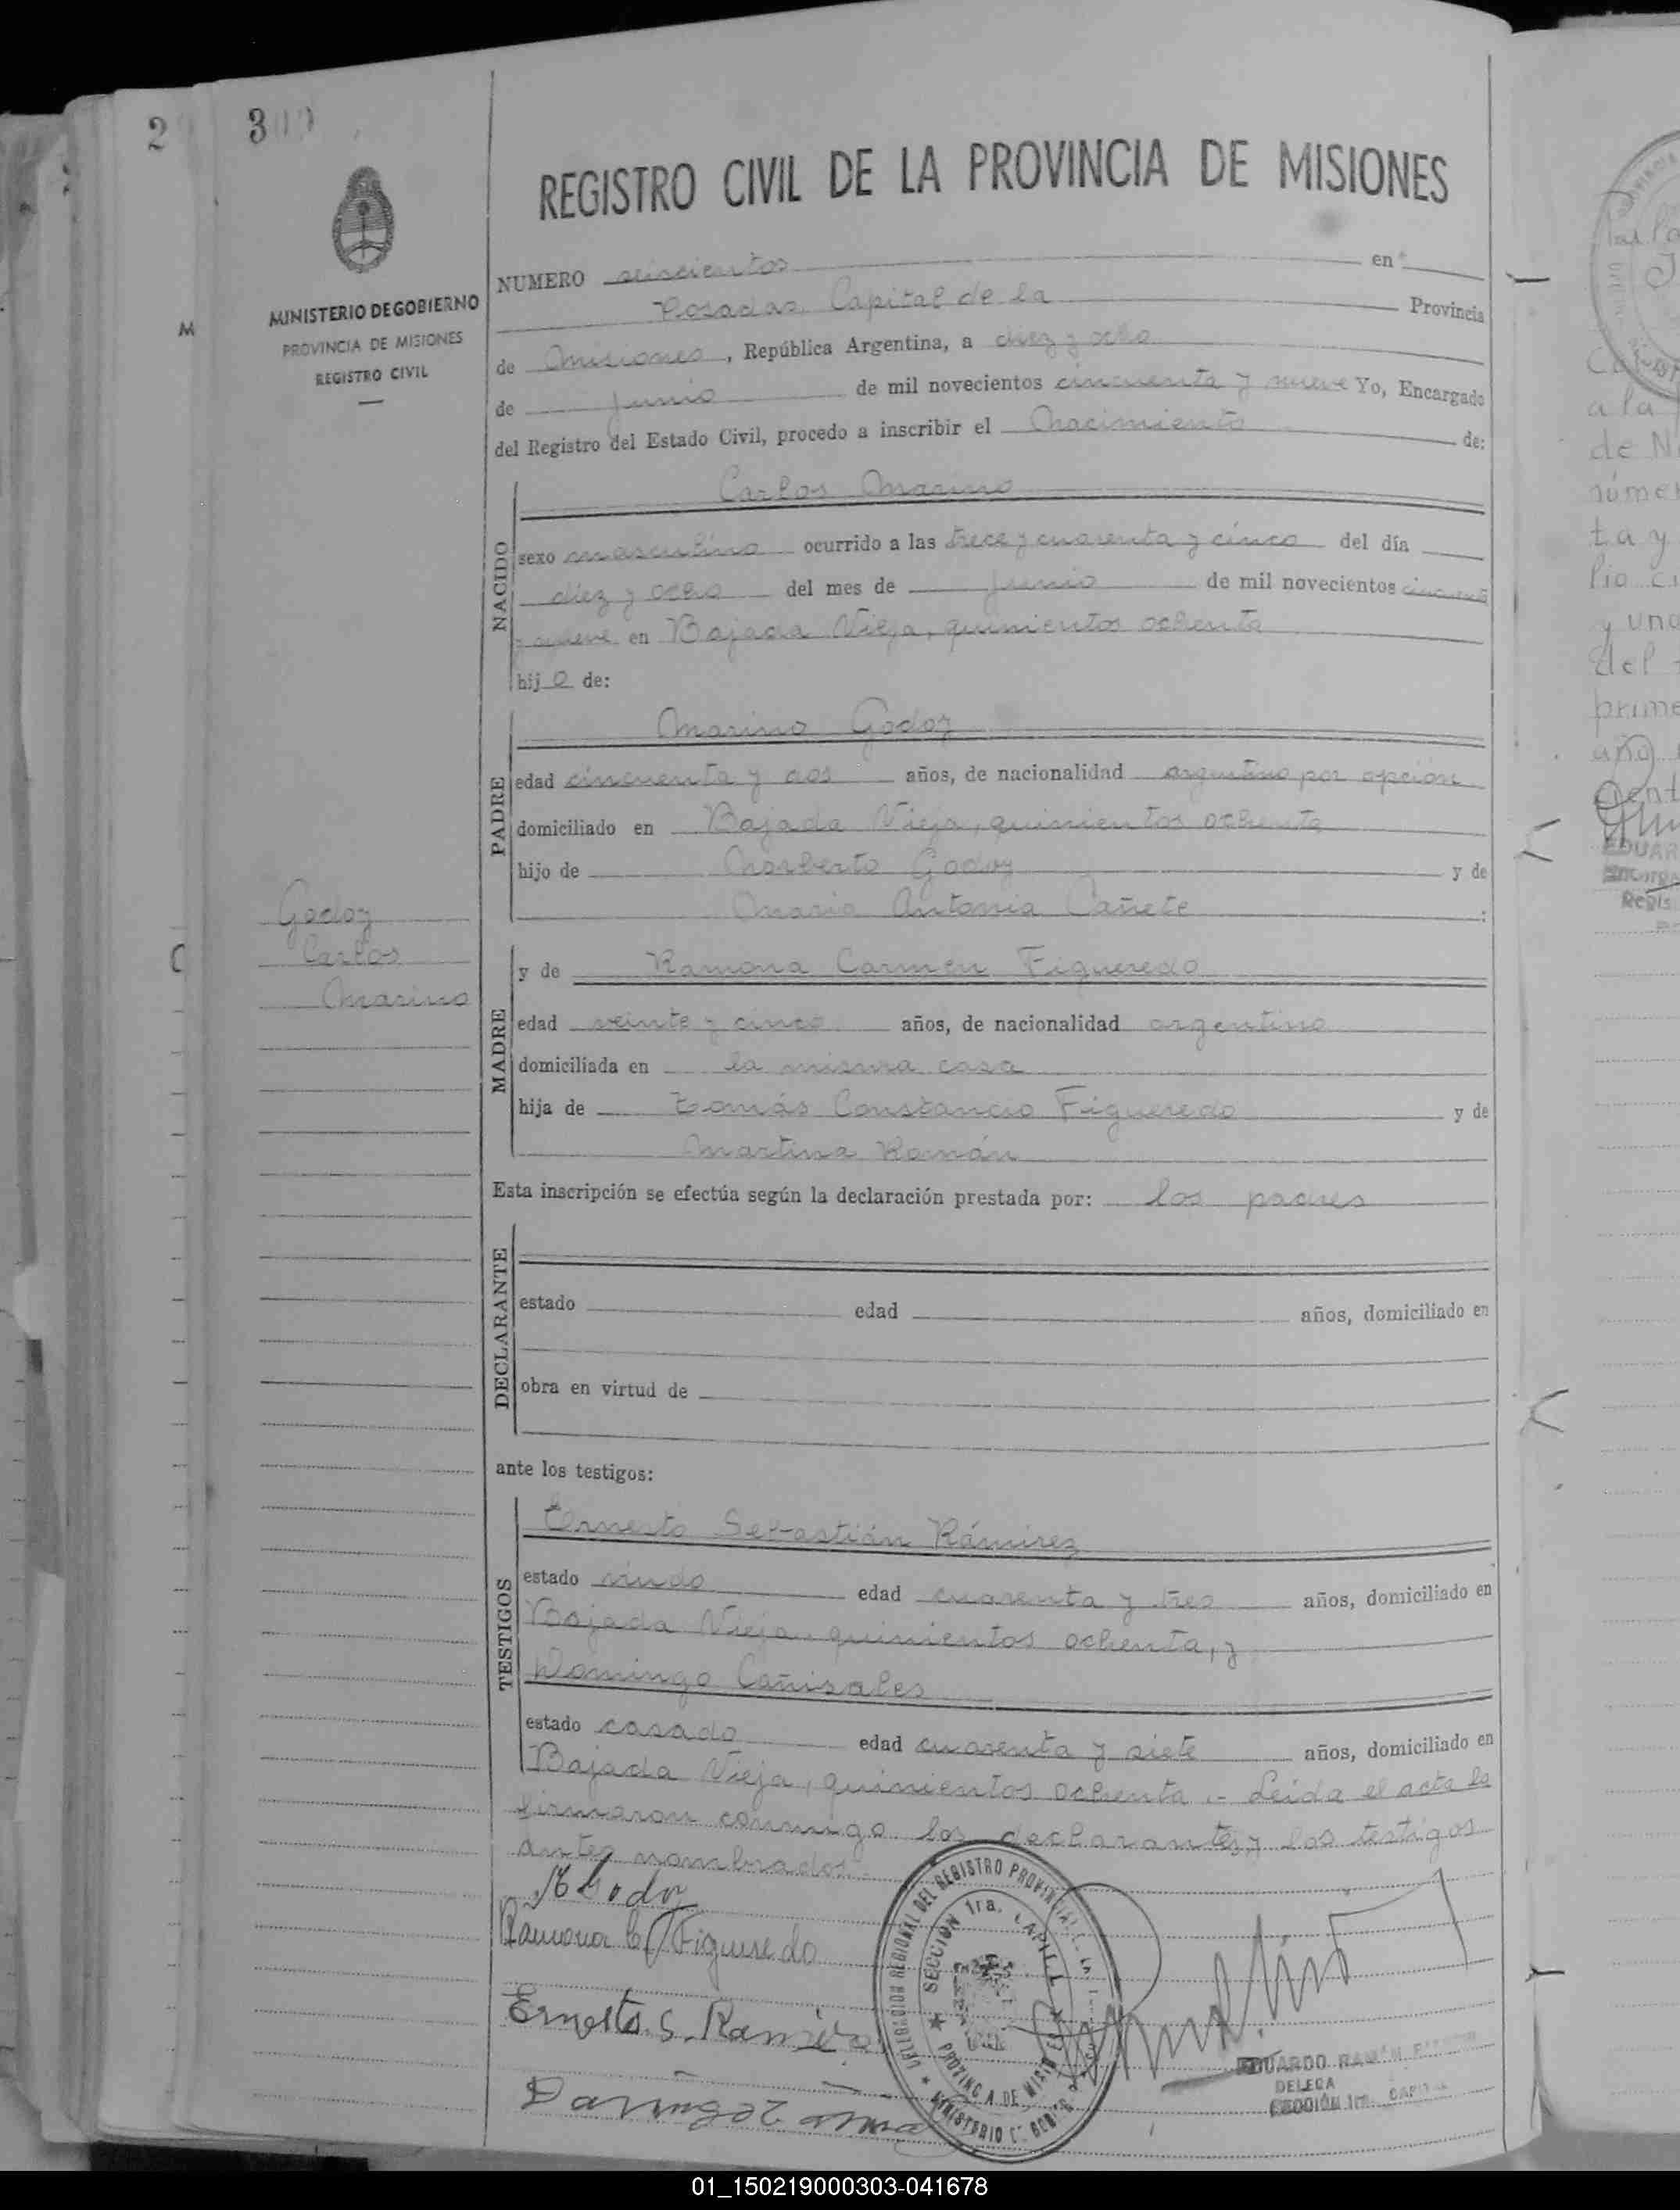 2
300
MINISTERIO DE GOBIERNO
PROVINCIA DE MISIONES
REGISTRO CIVIL
M
C
Godoy
Carlos
Marino
REGISTRO CIVIL DE LA PROVINCIA DE MISIONES
NUMERO seiscientos en
Posadas, Capital de la Provincia
de Misiones, República Argentina, a diez y ocho
de junio de mil novecientos cincuenta y nueve Yo, Encargado
del Registro del Estado Civil, procedo a inscribir el Nacimiento de:
NACIDO
Carlos Marino
sexo masculino ocurrido a las trece y cuarenta y cinco del día
diez y ocho del mes de junio de mil novecientos cincuenta
y nueve en Bajada Vieja, quinientos ochenta
hijo de:
PADRE
Marino Godoy
edad cincuenta y dos años, de nacionalidad argentino por opción
domiciliado en Bajada Vieja, quinientos ochenta
hijo de Norberto Godoy y de
Maria Antonia Cañete :
MADRE
y de Ramona Carmen Figueredo
edad veinte y cinco años, de nacionalidad argentina
domiciliada en la misma casa
hija de Tomás Constancio Figueredo y de
Martina Román
Esta inscripción se efectúa según la declaración prestada por: los padres
DECLARANTE
estado edad años, domiciliado en
obra en virtud de
ante los testigos:
TESTIGOS
Ernesto Sebastián Rámirez
estado viudo edad cuarenta y tres años, domiciliado en
Bajada Vieja quinientos ochenta, y
Domingo Cañisales
estado casado edad cuarenta y siete años, domiciliado en
Bajada Vieja, quinientos ochenta .- Leída el acta la
firmaron conmigo los declarantes y los testigos
antes nombrados.
M Godoy
Ramona C. Figueredo
Ernesto S. Ramirez
DELEGACION REGIONAL DEL REGISTRO PROVINCIAL
SECCION 1ra. CAPITAL
PROVINCIA DE MISIONES
MINISTERIO DE GOB
EDUARDO RAMÓN
DELEGA
SECCIÓN 1ra. CAPITAL
a la
de N
ta y
lio ci
y una
del
prime
año
EDUAR
Encarga
Regis
01_150219000303-041678